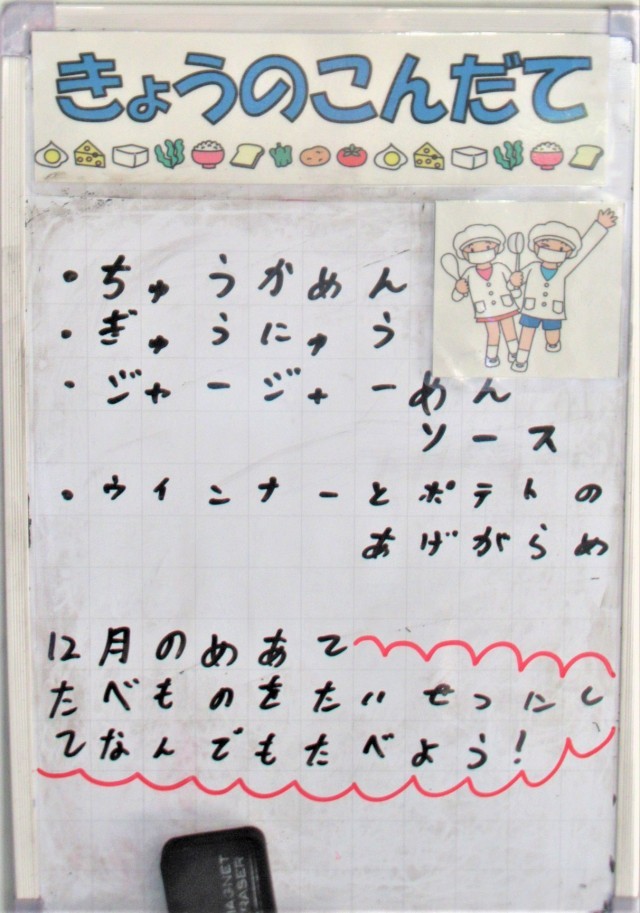 きょうのこんだて
・ちゅうかめん
・ぎゅうにゅう
・ジャージャーめん
ソース
・ウインナーとポテトの
あげがらめ
12月のめあて
たべものをたいせつにし
てなんでもたべよう!
MAGNET
ERASER